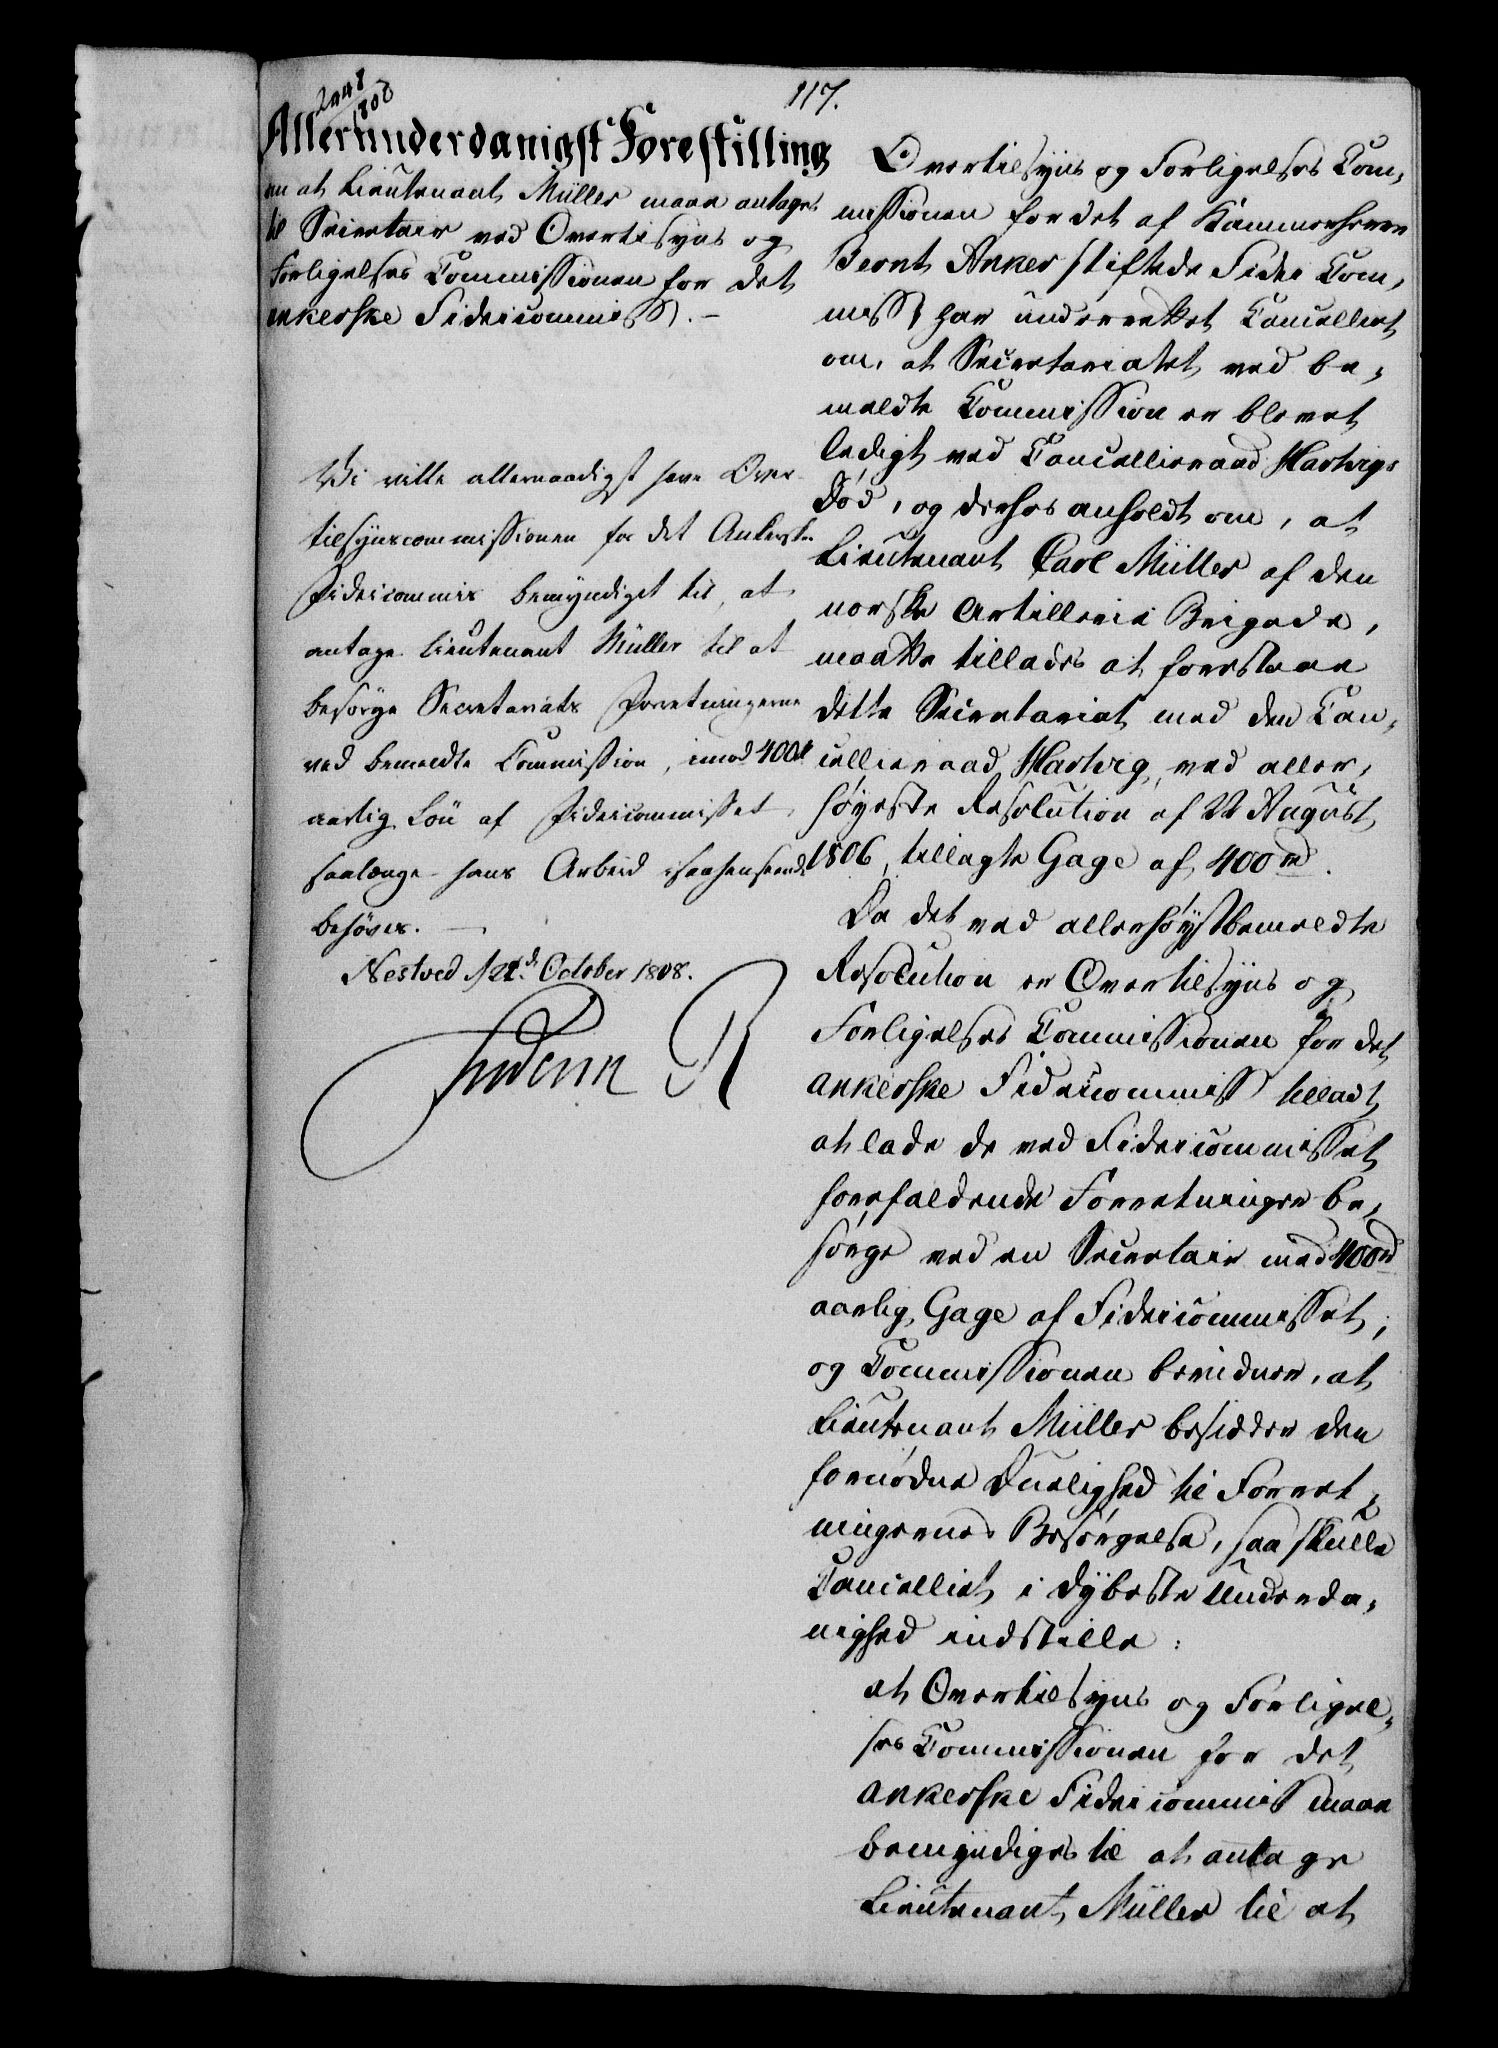 2448
1808
117.
Allerunderdanigst Forestilling
om at Lieutenant Müller maae antages
til Secretair ved Overtilsyns og
Forligelses Commissionen for det
ankerske Fideicommiss. –
Vi ville allernaadigst have Over-
tilsynscommissionen for det Ankerske
Fideicommis bemyndiget til, at
antage Lieutenant Müller til at
besörge Secretariats Forretningerne
ved bemeldte Commission, imod 400 rd
aarlig Lön af Fideicommisset,
saalænge hans Arbeid i saa henseende
behöves. —
Nestved d. October 1808.
Frederik R
Overtilsyns og Forligelses Com-
missionen for det af Kammerherre
Bernt Anker stiftede Fidei Com-
miss har underrettet Cancelliet
om, at Secretariatet ved be-
meldte Commission er blevet
ledigt ved Cancellieraad Hartvigs
Död, og derhos anholdt om, at
Lieutenant Carl Müller af den
norske Artillerie Brigade,
maatte tillades at forestaae
dette Secretariat med den Can-
cellieraad Hartvig, ved aller-
höyeste Resolution af 22 August
1806, tillagte Gage af 400 rd.
Da det ved allerhöystbemeldte
Resolution er Overtilsyns og
Forligelses Commissionen for det
ankerske Fideicommiss tilladt
at lade de ved Fideicommisset
forefaldende Forretninger be-
sörge ved en Secretair med 400 rd
aarlig Gage af Fideicommisset,
og Commissionen bevidner, at
Lieutenant Müller besidder den
fornödne Duelighed til Forret-
ningernes Besörgelse, saa skulle
Cancelliet i dybeste Underda-
nighed indstille:
at Overtilsyns og Forligel-
ses Commissionen for det
ankerske Fideicommiss maae
bemyndiges til at antage
Lieutenant Müller til at